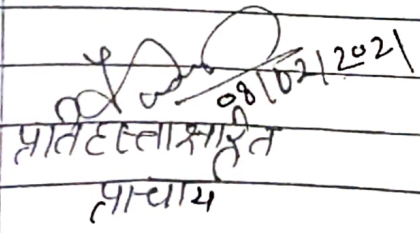 08/02/2021
प्रतिहस्ताक्षरित
प्राचार्य